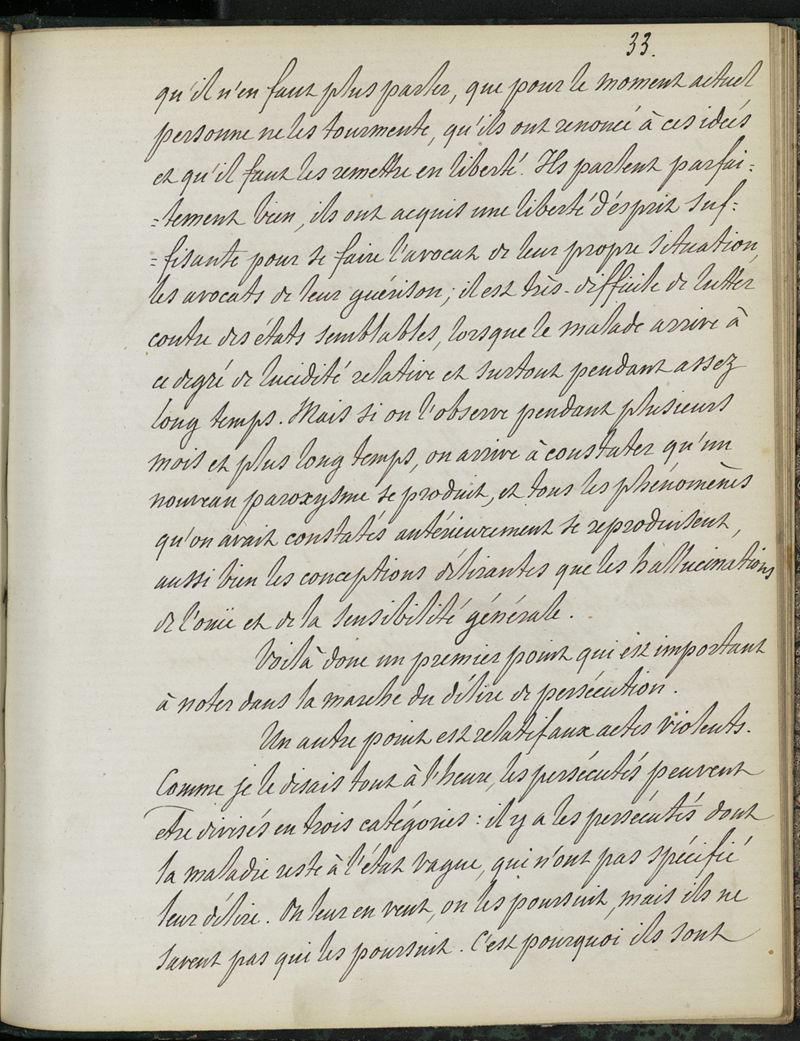 33.
qu'il n'en faut plus parler, que pour le moment actuel
personne ne les tourmente, qu'ils ont renoncé à ces ideés
et qu'il faut les remettre en liberté. Ils parlent parfai=
=tement bien, ils ont acquis une liberté d'esprit suf=
=fisante pour se faire l'avocat de leur propre situation,
les avocats de leur guérison; il est très-difficile de lutter
contre des états semblables, lorsque le malade arrive à
ce degré de lucidité relative et surtout pendant assez
long temps. Mais si on l'observe pendant plusieurs
mois et plus long temps, on arrive à constater qu'un
nouveau paroxysme se produit, et tous les phénomènes
qu'on avait constatés antérieurement se reproduisent,
aussi bien les conceptions délirantes que les hallucinations
de l'ouïe et de la sensibilité générale.
Voilà donc un premier point qui est important
à noter dans la marche du délire de persécution.
Un autre point est relatif aux actes violents.
Comme je le disais tout à l'heure, les persécutés peuvent
être divisés en trois catégories: il y a les persécutés dont
la maladie reste à l'état vague, qui n'ont pas spécifié
leur délire. On leur en veut, on les poursuit, mais ils ne
savent pas qui les poursuit. C'est pourquoi ils sont